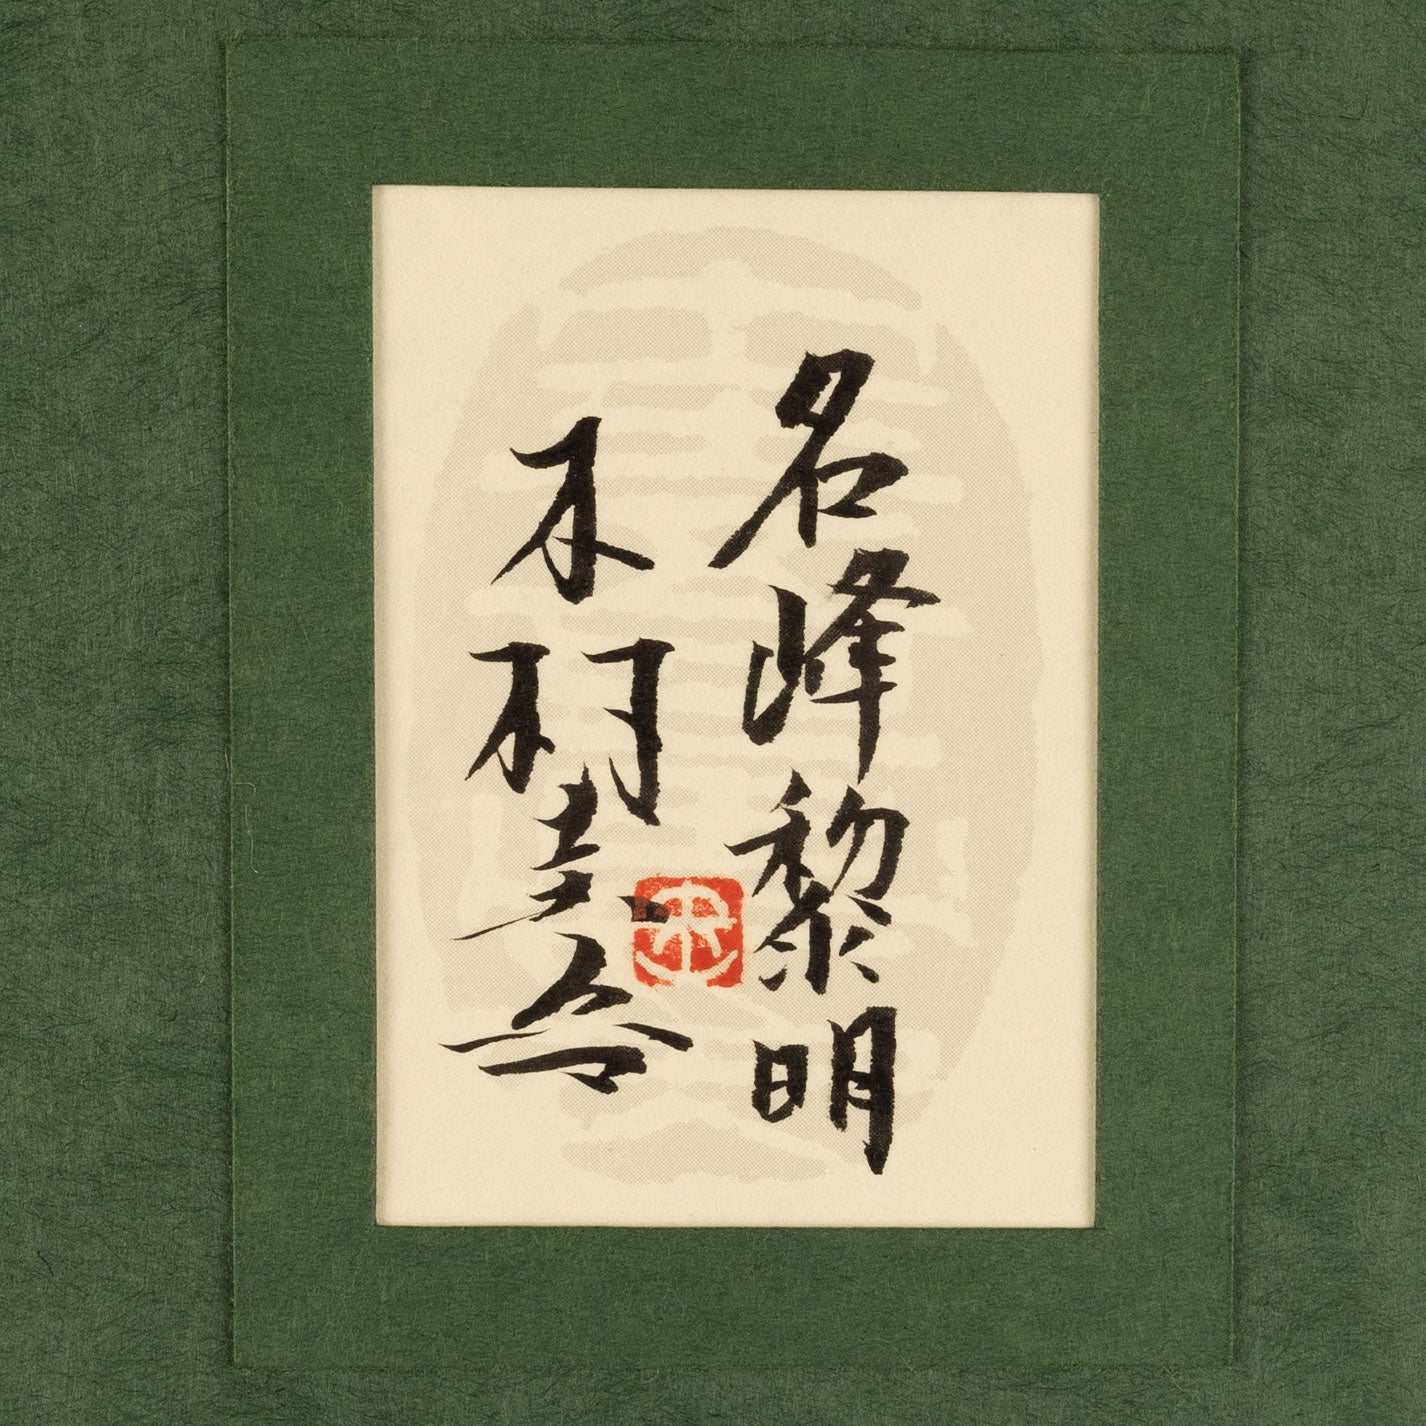 名峰黎明
木村圭吾